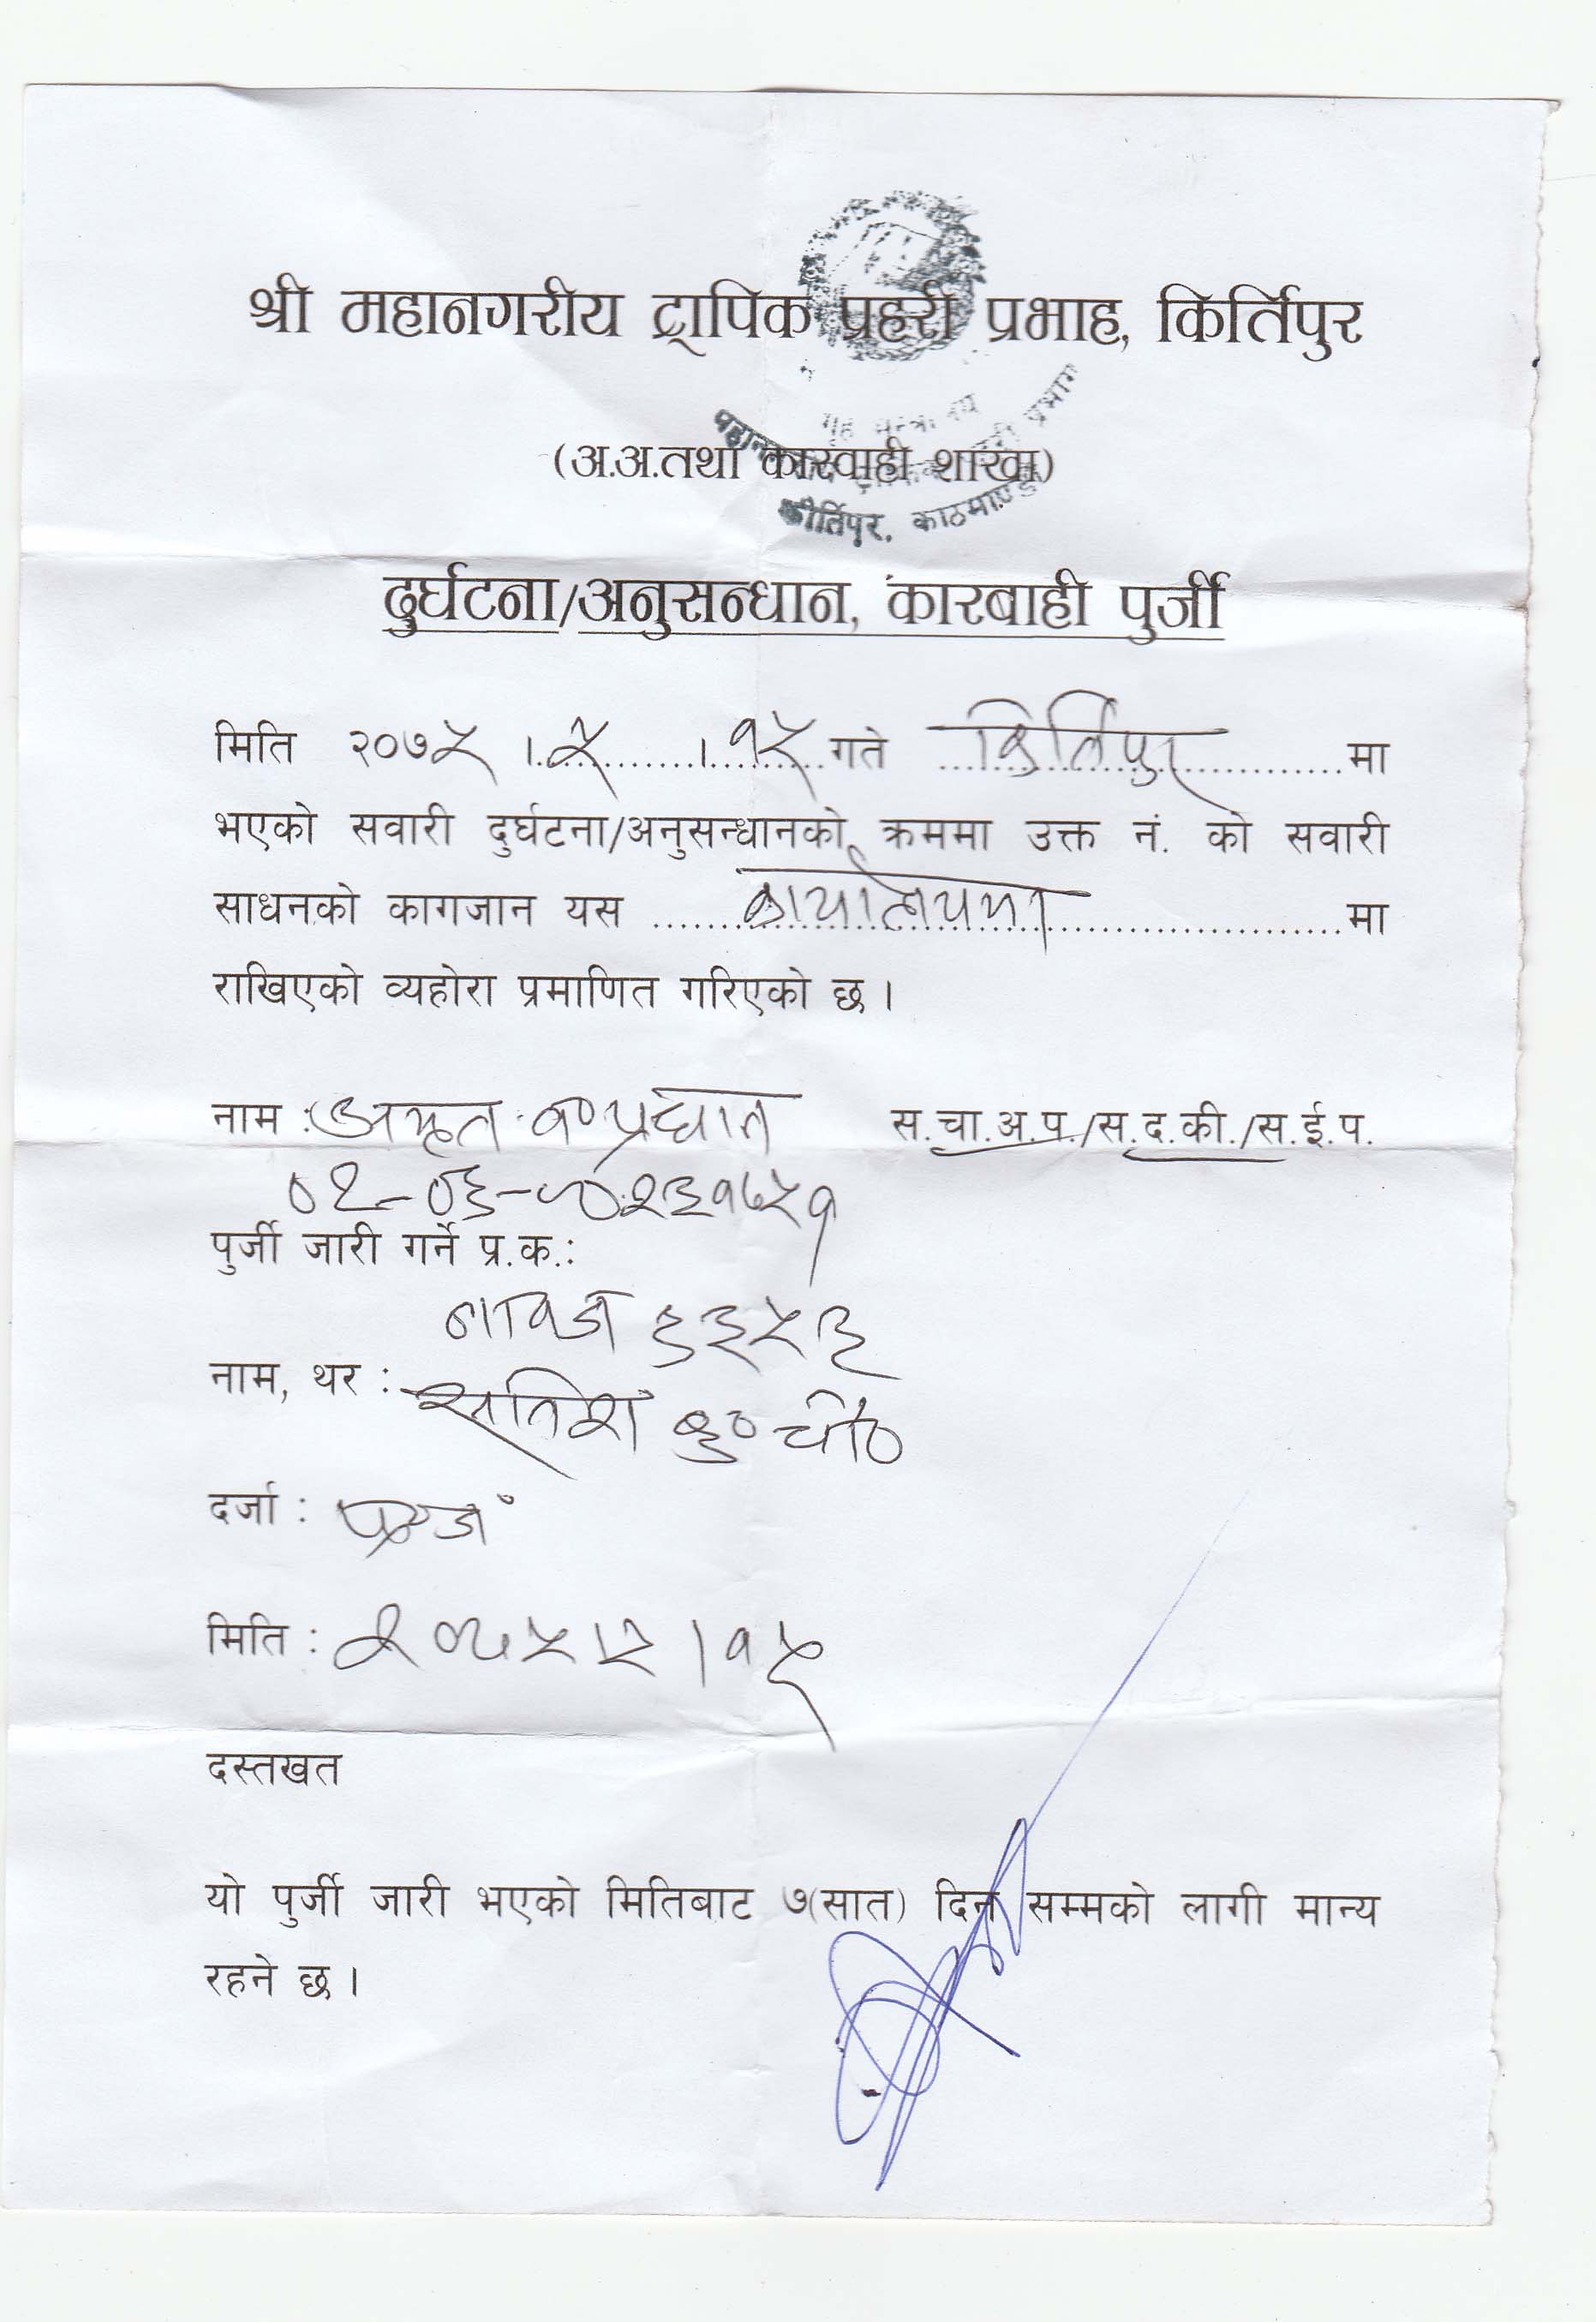 श्री महानगरीय ट्रापिक प्रहरी प्रभाह, किर्तिपुर
गृह
(अ.अ.तथा कारवाही शाखा)
कीर्तिपुर, काठमाण्डौ
दुर्घटना/अनुसन्धान, कारबाही पुर्जी
मिति २०७५ ।५ ।१५ गते किर्तिपुर मा
भएको सवारी दुर्घटना/अनुसन्धानको क्रममा उक्त नं. को सवारी
साधनको कागजान यस कार्यालयमा मा
राखिएको व्यहोरा प्रमाणित गरिएको छ ।
नाम : अमृत व० प्रधान स.चा.अ.प./स.द.की./स.ई.प.
पुर्जी जारी गर्ने प्र.क.:
६३५३
नाम, थर : सतिश कु० चौ०
दर्जा :
मिति : २०७५।५।१५
दस्तखत
यो पुर्जी जारी भएको मितिबाट ७(सात) दिन सम्मको लागी मान्य
रहने छ ।